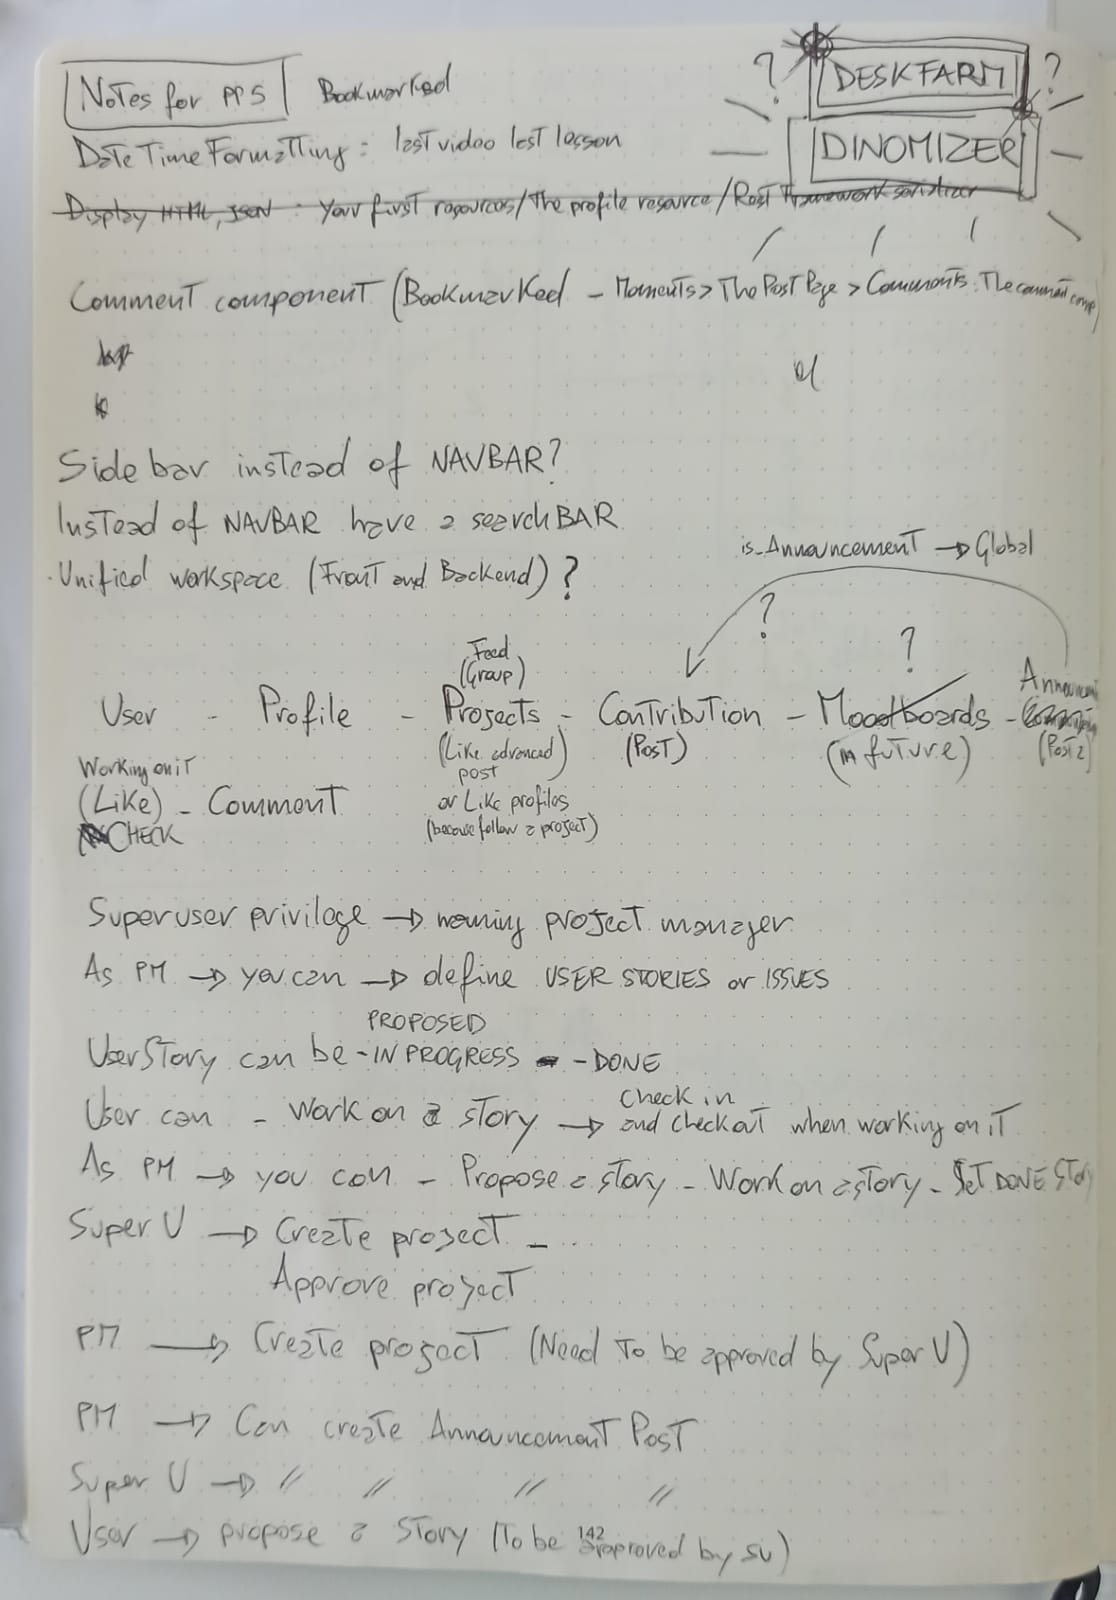 Notes for PP5 Bookmarked
? DESKFARM ?
DINOMIZER
DateTimeFormatting: last video last lesson
Display HTML, JSON: Your first resources/The profile resource/Rest framework serializer
Comment component (Bookmarked - Moments > The Post Page > Comments: The comment comp)
Side bar instead of NAVBAR?
Instead of NAVBAR have a search BAR
is_Announcement → Global
Unified workspace (Front and Backend) ?
? ?
Feed
(Group)
User - Profile - Projects - Contribution - Moodboards - Announcement
(Like advanced post (Post) (in future) (Post 2)
or Like profiles
(because follow a project)
Working on it
(Like) - Comment
CHECK
Superuser privilege → naming project manager
As PM → you can → define USER STORIES or ISSUES
PROPOSED
UserStory can be - IN PROGRESS - DONE
User can - Work on a story → check in and checkout when working on it
As PM → you can - Propose a story - Work on a story - SET DONE STORY
Super U → Create project -
Approve project
PM → Create project (Need to be approved by Super U)
PM → Can create Announcement Post
Super U → " " " "
User → propose a story (to be approved by SU)
142